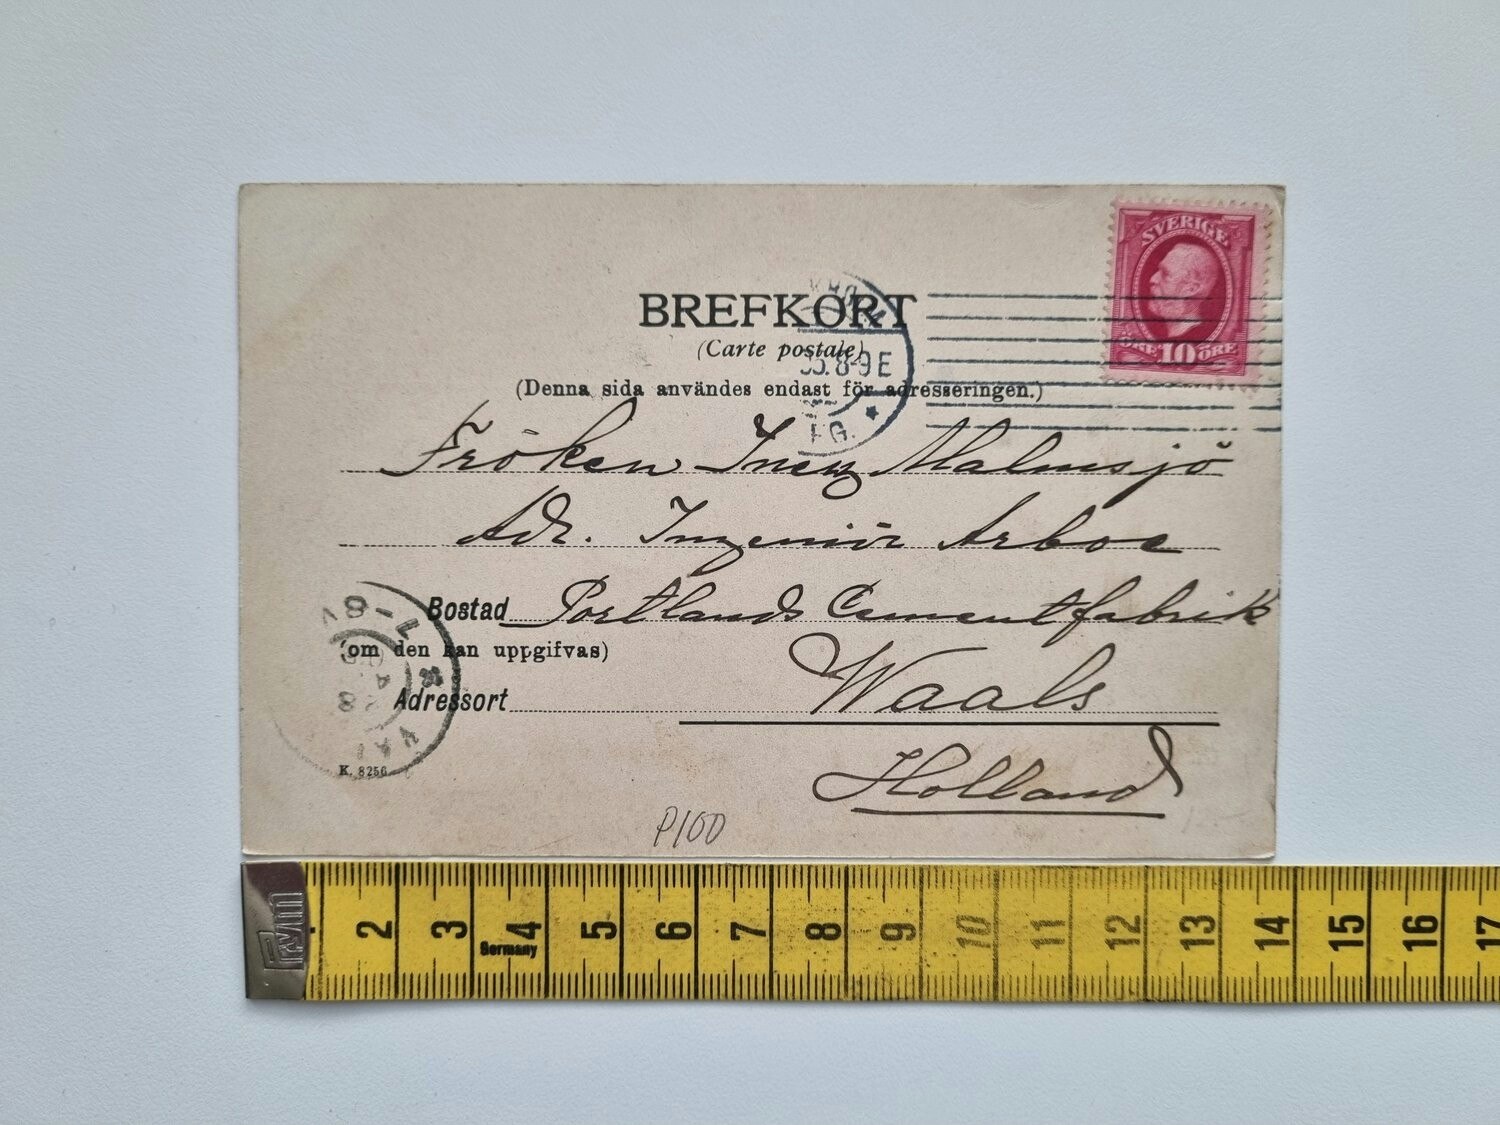 SVERIGE
ÖRE 10 ÖRE
BREFKORT
(Carte postale)
8-9 E
(Denna sida användes endast för adresseringen.)
Fröken Inez Malmsjö
Adr. Ingeniör Arboe
Bostad Portlands Cementfabrik
(om den kan uppgifvas)
Waals
Adressort
Holland
K. 8256
P100
Prym
2 3 4 5 6 7 8 9 10 11 12 13 14 15 16 17
Germany